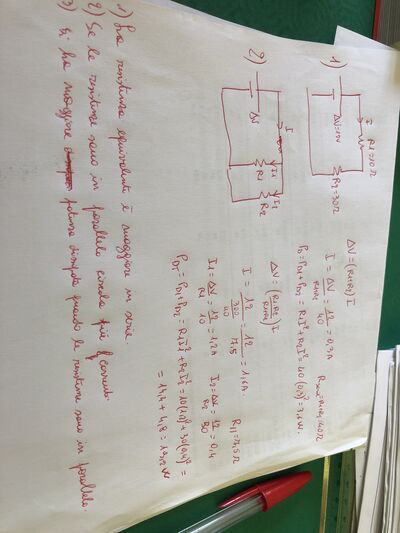 1)
I
R1=10Ω
ΔV=12V
R2=30Ω
ΔV = (R1+R2) I
I = ΔV / R1+R2 = 12 / 40 = 0,3A
PD = PD1 + PD2 = R1 I² + R2 I² = 40 (0,3)² = 3,6 W.
2)
I
ΔV
I1
I2
R1
R2
ΔV = (R1R2 / R1+R2) I
I = 12 / 300/40 = 12 / 7,5 = 1,6A
R11 = 7,5Ω
I1 = ΔV / R1 = 12 / 10 = 1,2A
I2 = ΔV / R2 = 12 / 30 = 0,4
PDT = PD1 + PD2 = R1 I1² + R2 I2² = 10 (1,2)² + 30 (0,4)² =
= 14,4 + 4,8 = 19,2 W
1) La resistenza equivalente è maggiore in serie.
2) Se le resistenze sono in parallelo circola più corrente.
3) Si ha maggiore potenza dissipata quando le resistenze sono in parallelo.